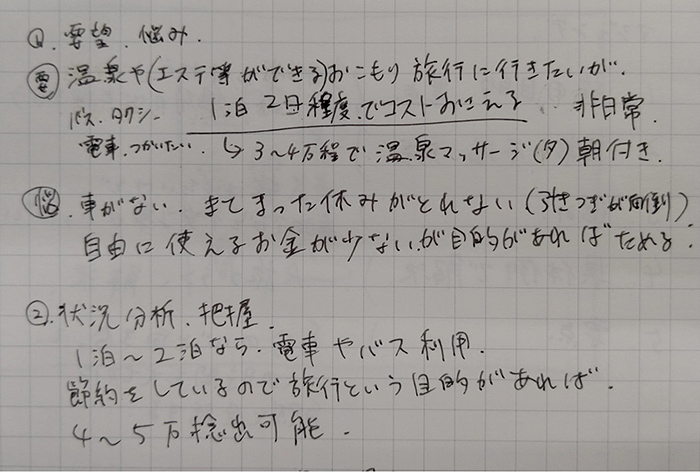 ①. 要望、悩み.
㊩ 温泉や(エステ等ができる)おこもり旅行に行きたいが.
バス、タクシー 1泊2日程度.でコストおさえる 非日常.
電車.つかいたい. ↳ 3〜4万程で温泉マッサージ(夕)朝付き.
悩. 車がない. まてまった休みがとれない(引きつぎが面倒)
自由に使えるお金が少ないが目的があればためる:
②. 状況分析、把握.
1泊〜2泊なら.電車やバス利用.
節約をしているので旅行という目的があれば.
4〜5万捻出可能.